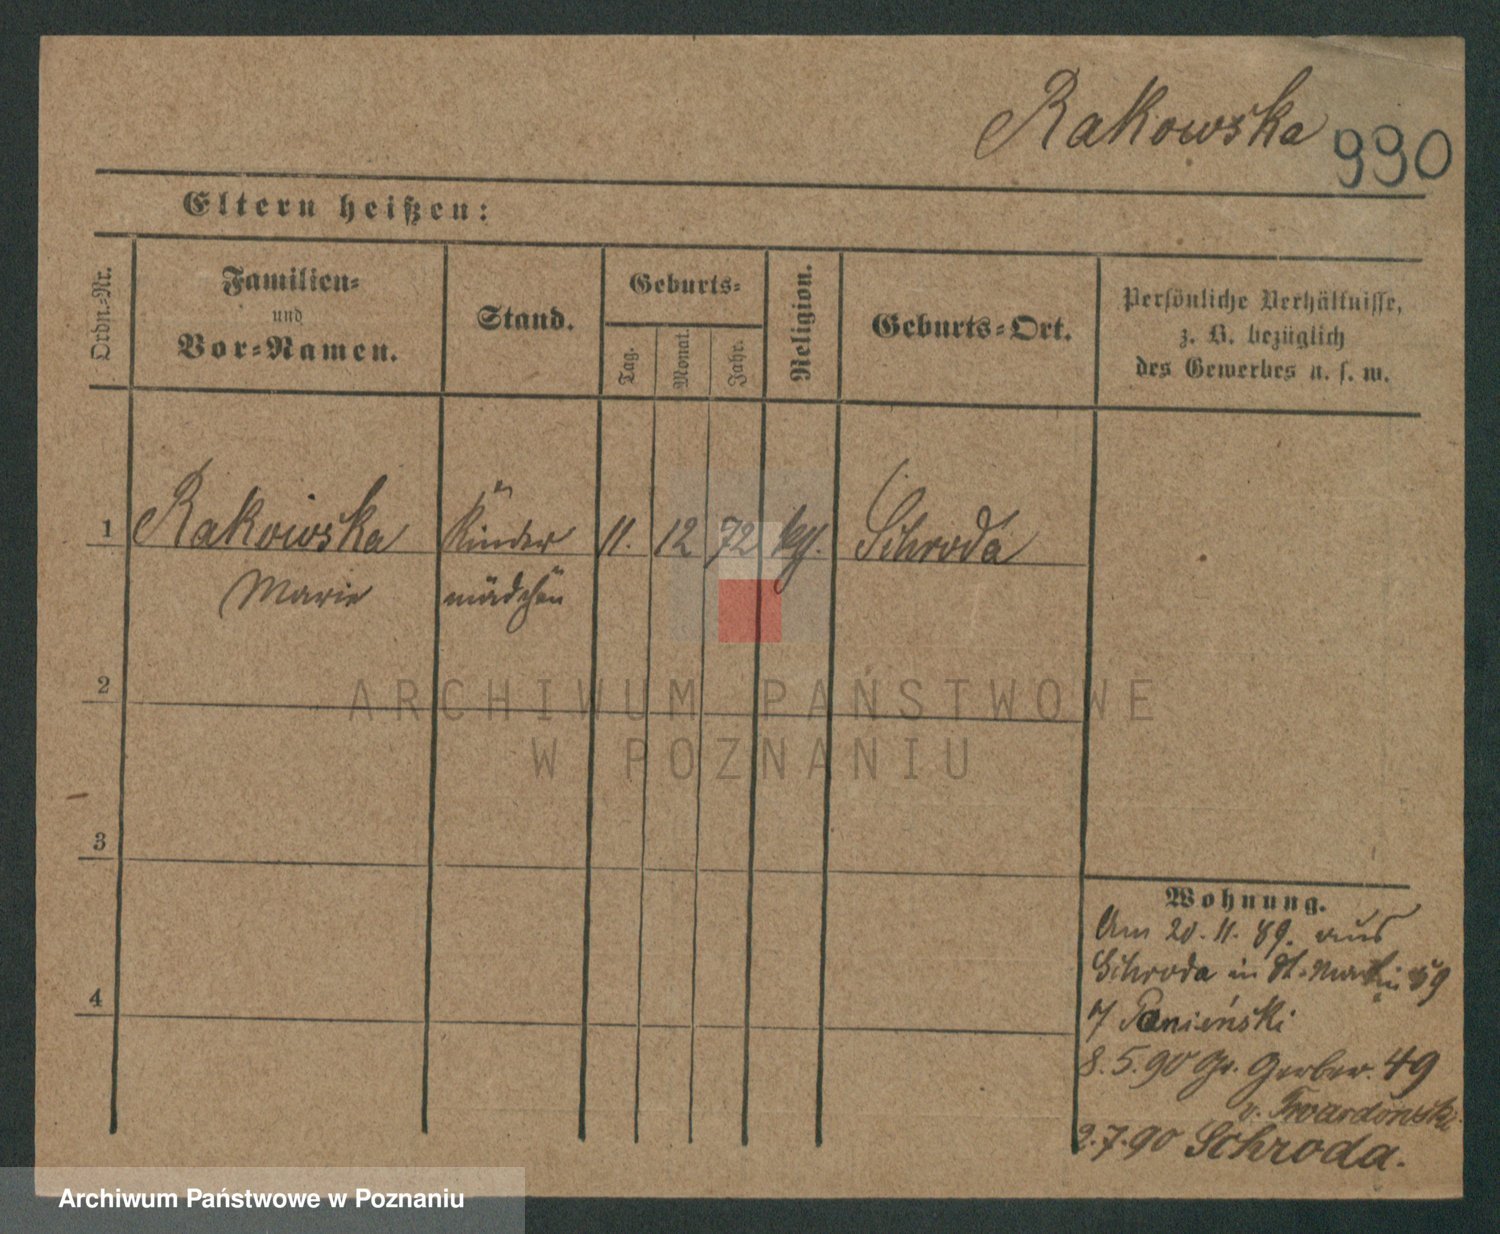 Rakowska 990
Eltern heißen:
Ordn.-Nr.
Familien-
und
Vor-Namen.
Stand.
Geburts-
Tag.
Monat.
Jahr.
Religion.
Geburts-Ort.
Persönliche Verhältnisse,
z. B. bezüglich
des Gewerbes u. s. w.
1 Rakowska Kinder 11. 12 72 kg. Schroda
Marie mädchen
2
ARCHIWUM PAŃSTWOWE
W POZNANIU
3
4
Wohnung.
Am 20.11.89. aus
Schroda in St. Martin 59
Ponieński
8.5.90 Gr. Gerber. 49
v. Twardowski
2.7.90 Schroda.
Archiwum Państwowe w Poznaniu